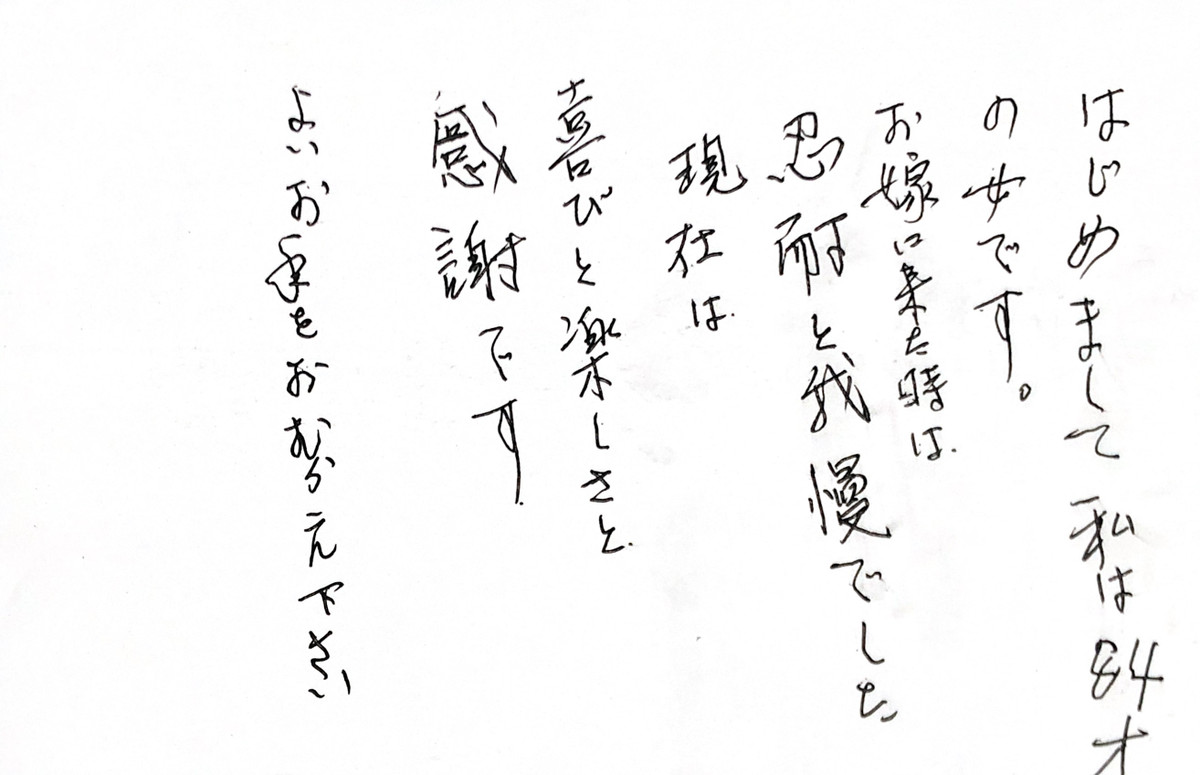 はじめまして私は84才
の女です。
お嫁に来た時は、
忍耐と我慢でした
現在は、
喜びと楽しさと、
感謝です。
よいお年をおむかえ下さい